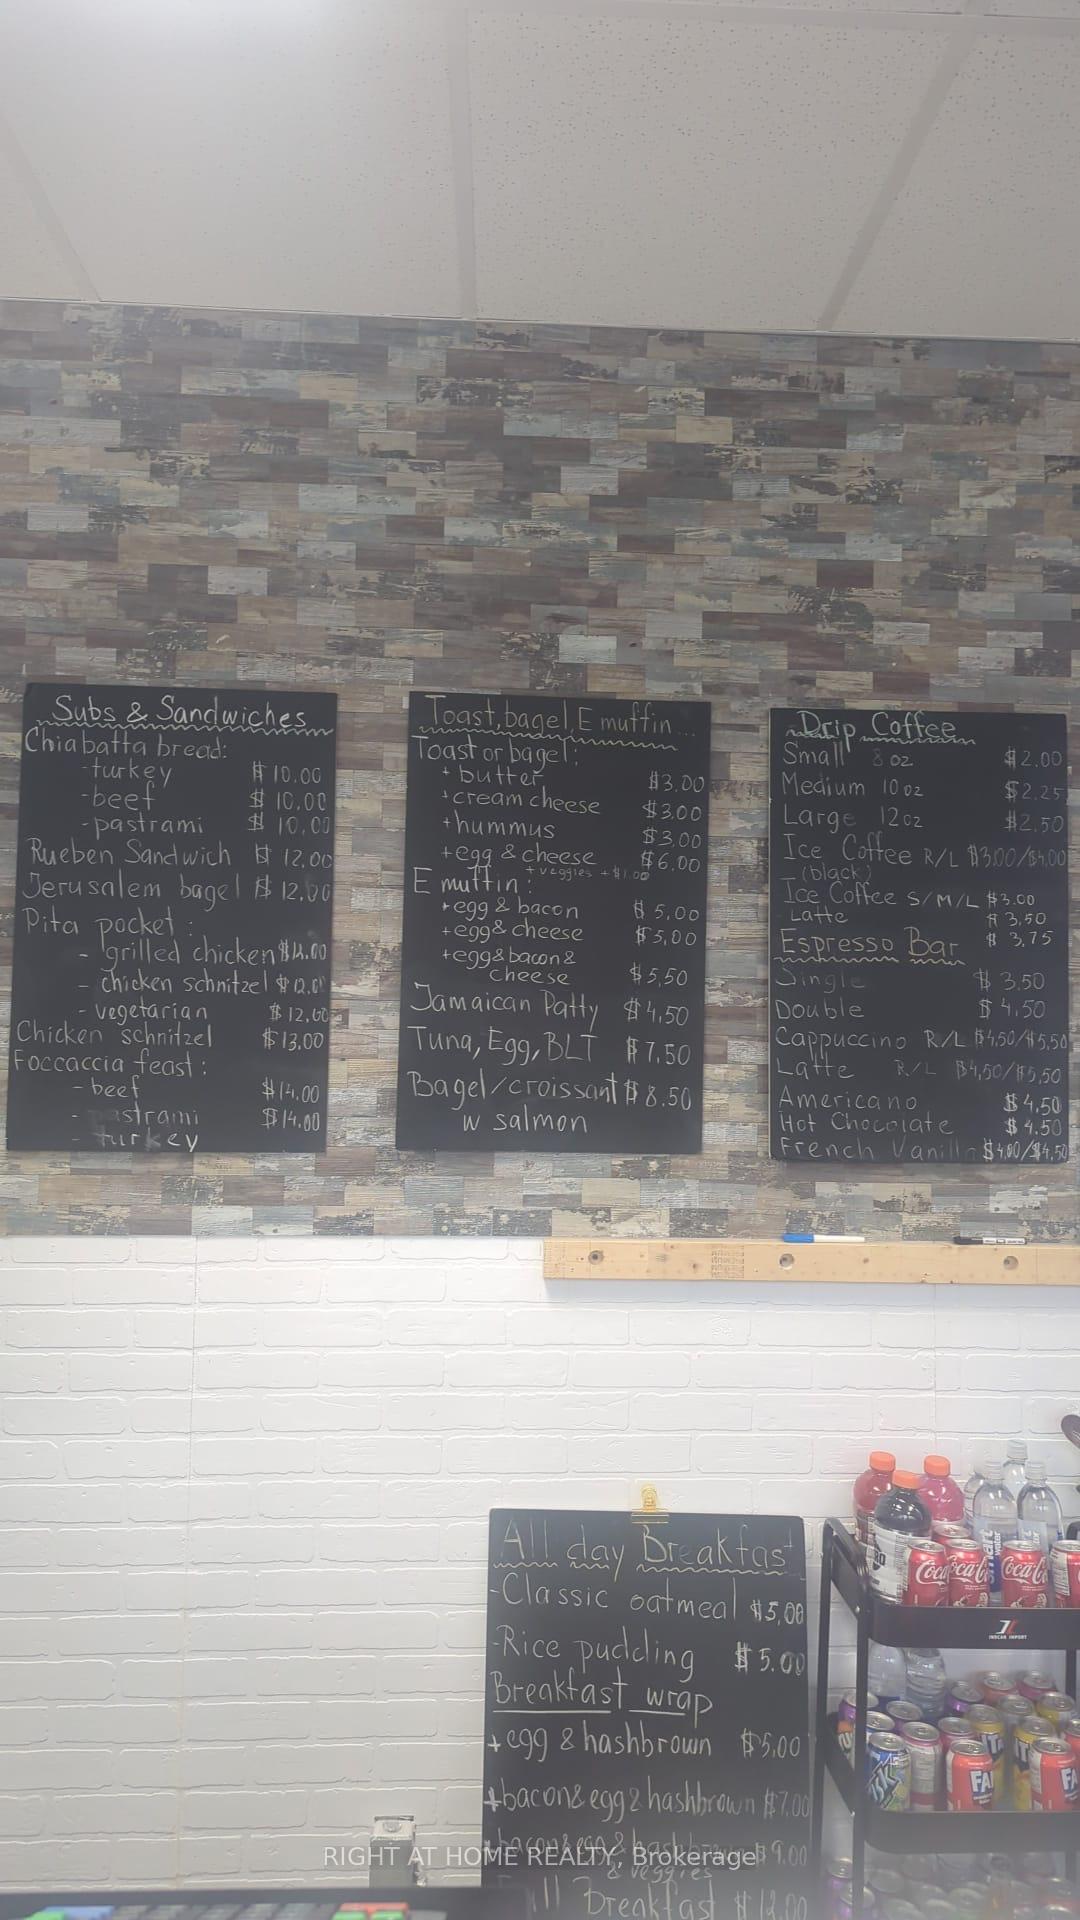 Subs & Sandwiches
Chiabatta bread:
-turkey $10.00
-beef $10.00
-pastrami $10.00
Rueben Sandwich $12.00
Jerusalem bagel $12.00
Pita pocket:
- grilled chicken
- chicken schnitzel $12.00
- vegetarian $12.00
Chicken schnitzel $13.00
Foccaccia feast:
- beef $14.00
- pastrami $14.00
- turkey
Toast, bagel, E muffin...
Toast or bagel:
+ butter $3.00
+ cream cheese $3.00
+ hummus $3.00
+ egg & cheese $6.00
+ veggies +$1.00
E muffin:
+ egg & bacon $5.00
+ egg & cheese $5.00
+ egg & bacon &
cheese $5.50
Jamaican Patty $4.50
Tuna, Egg, BLT $7.50
Bagel/croissant $8.50
w salmon
Drip Coffee
Small 8 oz $2.00
Medium 10 oz $2.25
Large 12 oz $2.50
Ice Coffee R/L $3.00/$4.00
(black)
Ice Coffee S/M/L $3.00
Latte $3.50
$3.75
Espresso Bar
Single $3.50
Double $4.50
Cappuccino R/L $4.50/$5.50
Latte R/L $4.50/$5.50
Americano $4.50
Hot Chocolate $4.50
French Vanilla $4.00/$4.50
All day Breakfast
-Classic oatmeal $5.00
-Rice pudding $5.00
Breakfast wrap
+ egg & hashbrown $5.00
+ bacon & egg & hashbrown $7.00
+ bacon & egg & hashbrown $9.00
& veggies
Full Breakfast $12.00
Coca-Cola
Coca-Cola
JL
INSCAN IMPORT
RIGHT AT HOME REALTY, Brokerage